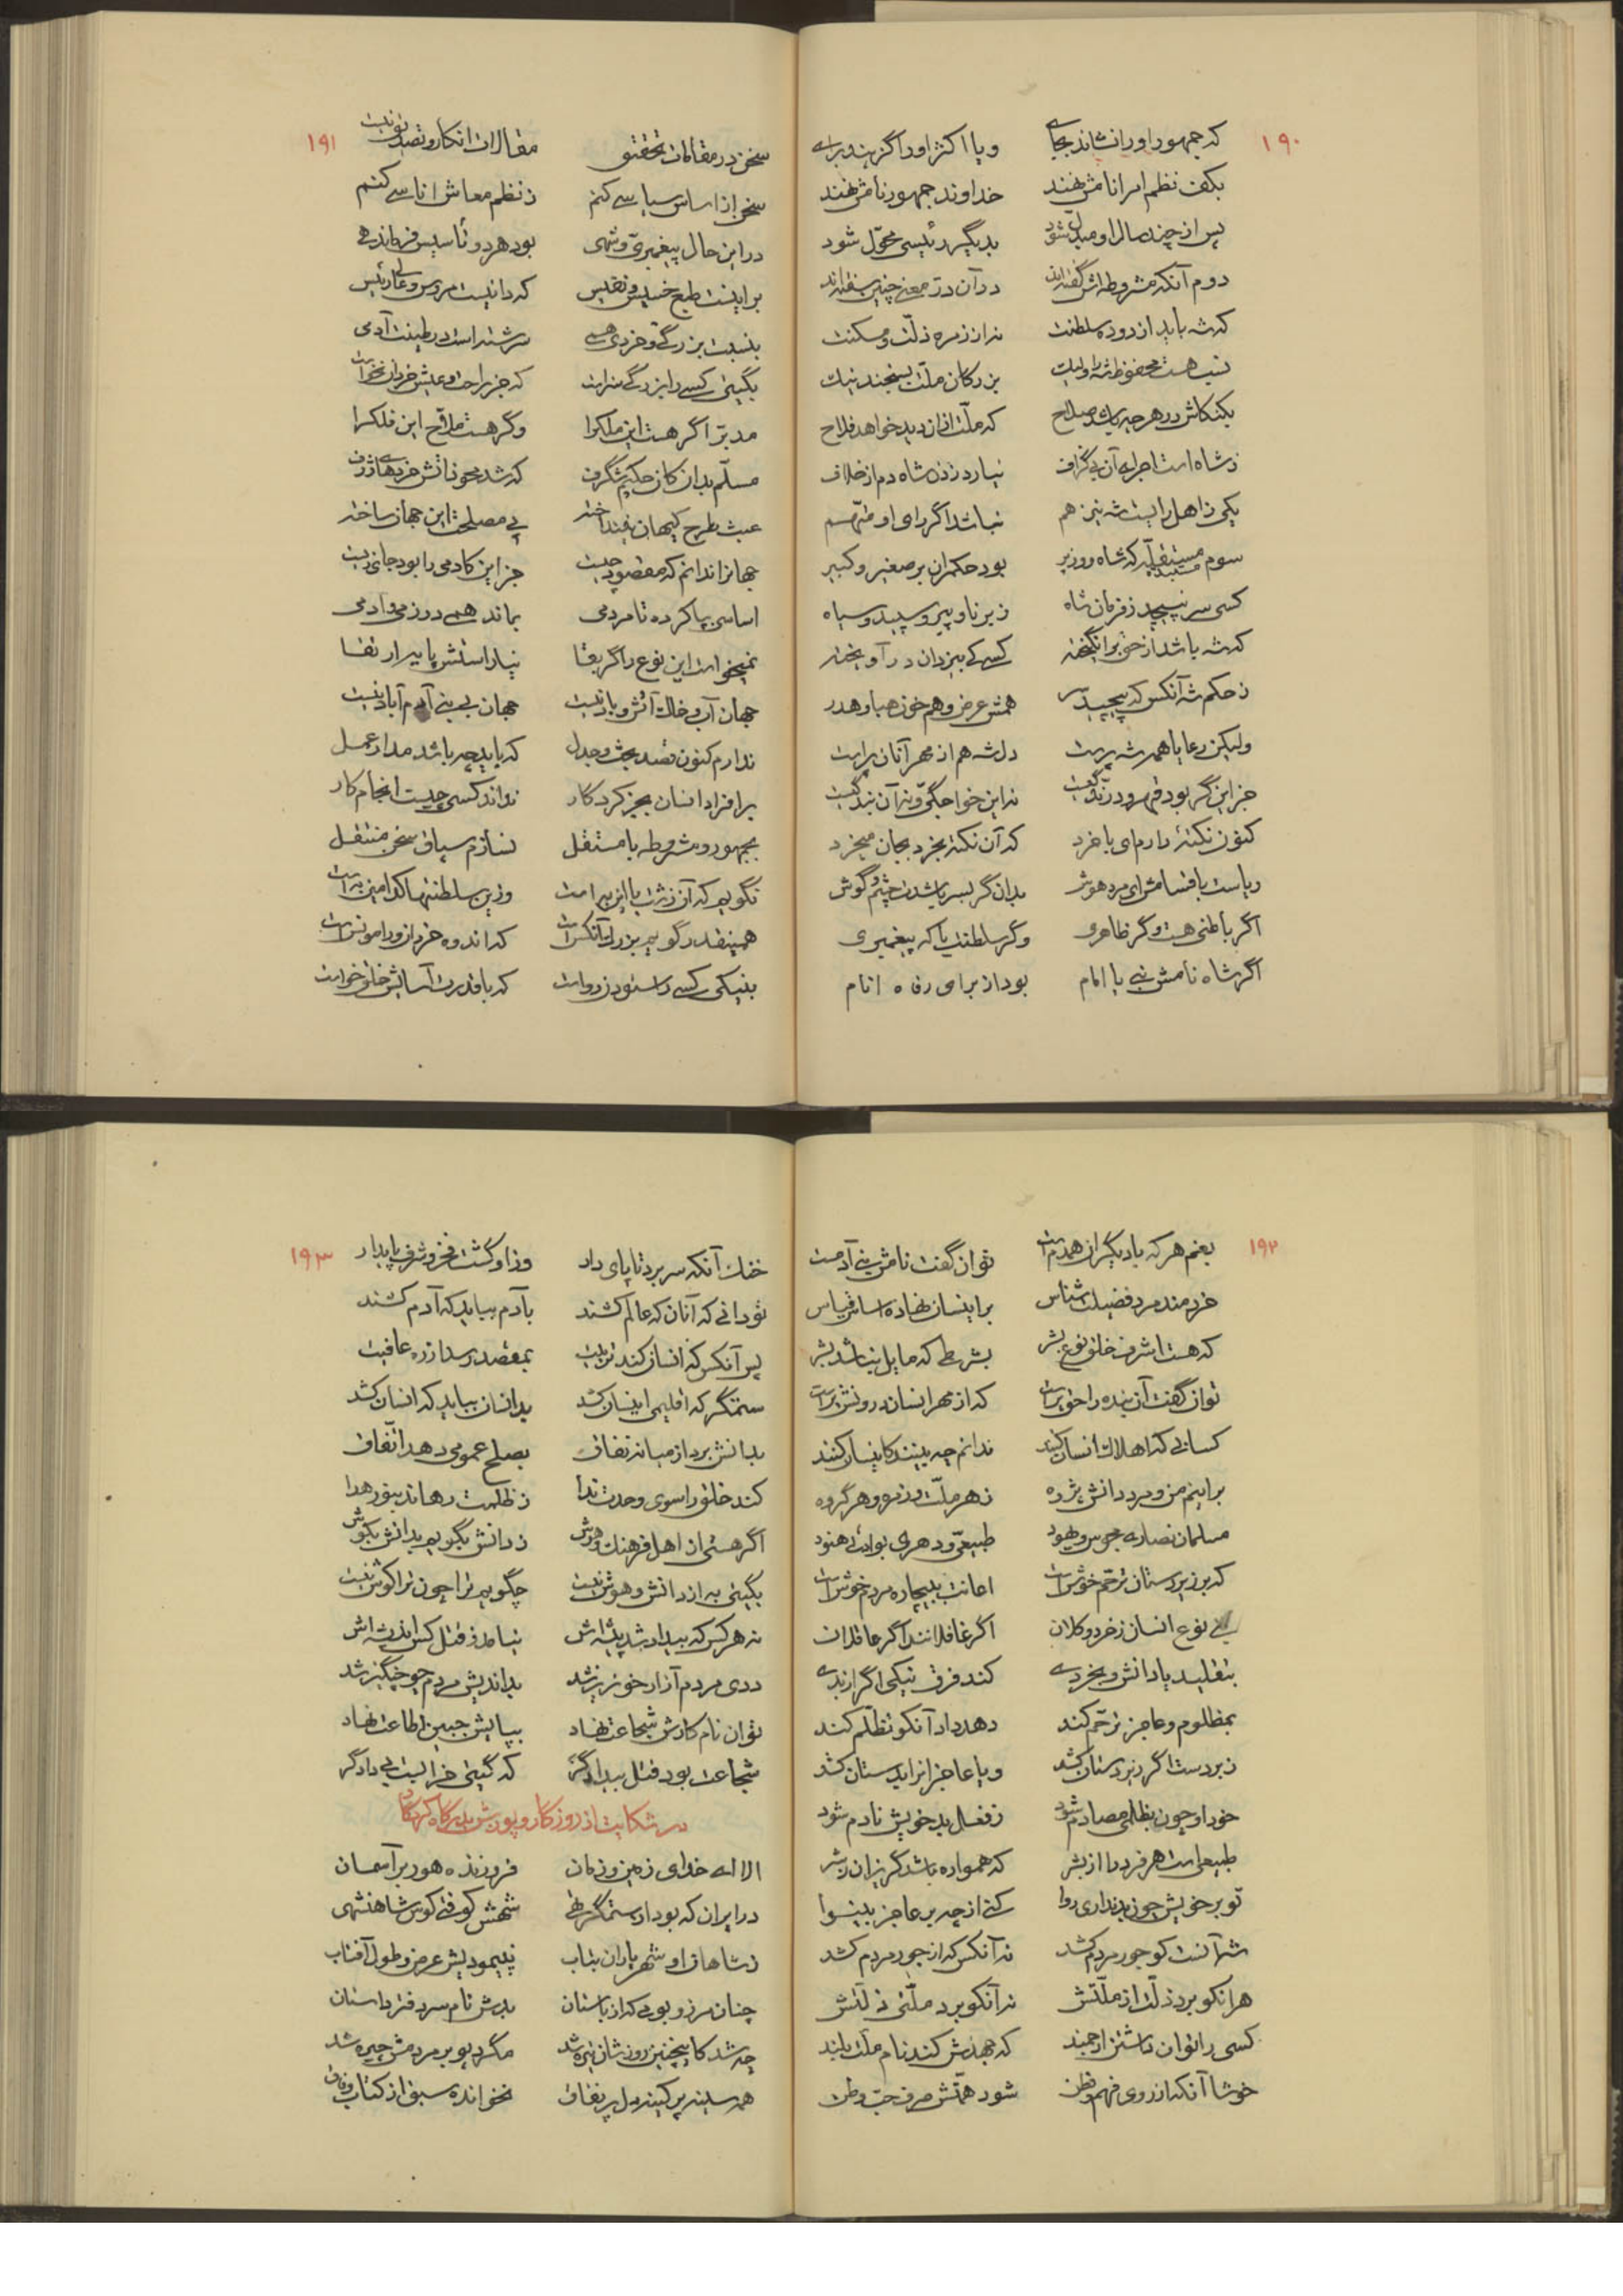 ۱۹۰
که جمهور او را نشاند بجای و یا اکثر او را گزیند برای
بکف نظم امرانامش نهند خداوند جمهور نامش نهند
پس از چند سال او مبدل شود بدیگر رئیسی محوّل شود
دوم آنکه مشروطه‌اش گفته‌اند در آن درّ معنی چنین سفته‌اند
که شه باید از دوده سلطنت نه از زمره ذلّت و مسکنت
بزرگان ملّت بسنجند نیک
بکنکاش در هر چه باشد صلاح که ملّت از آن دید خواهد فلاح
ز شاه است اجرای آن بی گزاف نیارد زدن شاه دم از خلاف
یکی ز اهل رایست شه نیز هم نباشد اگر رای او متّهم
سوم مستقلّیه که شاه و وزیر بود حکمران بر صغیر و کبیر
کسی سر نپیچد ز فرمان شاه ز برنا و پیر و سپید و سیاه
که شه باشد از حق برانگیخته کسی کی بیزدان درآویخته
ز حکم شه آنکس که پیچید سر همش عرض و هم خون هبا و هدر
ولیکن رعایا همه شه پرست دل شه هم از مهر آنان پر است
جز این گر بود قهر و درّندگیست نه این خواجگیّ و نه آن بندگیست
کنون نکتهٔ دارم ای با خرد که آن نکته بخرد بجان میخرد
ریاست باقسامش ای مرد هوش بدان گر بسر باشدت چشم و گوش
اگر باطنی هست و گر ظاهری و گر سلطنت یا که پیغمبری
اگر شاه نامش نبی یا امام بود از برای رفاه انام
۱۹۱
سخن در مقامات تحقیق نیست مقالات انکار و تصدیق نیست
سخن از اساس سیاسی کنم ز نظم معاش اناسی کنم
در این حال پیغمبریّ و شهی بود هر دو تأسیس فرماندهی
بر اینست طبع خسیس و نفیس که دانیست مرؤس و عالی رئیس
بنسبت بزرگی و خردی همی سرشته است در طینت آدمی
بگیتی کسی را بزرگی سزاست که جز راحت و عیش خردان نخواست
مدبّر اگر هست این ملکرا و گر هست ملاّح این فلکرا
مسلّم بدان کان حکیم شگرف که شد محو ذاتش خردهای ژرف
عبث طرح کیهان نینداخته پی مصلحت این جهان ساخته
جهانرا ندانم که مقصود چیست جز این کادمی را بود جای زیست
اساسی بپا کرده تا مردمی بماند همی در زمی آدمی
نمیخواست این نوع را گر بقا نیاراستش پایه ارتقا
جهان آب و خاک آتش و باد نیست جهان بی بنی آدم آباد نیست
ندارم کنون قصد بحث و جدل که باید چه باشد مدار عمل
برافزاد انسان بجز کردگار نداند کسی چیست انجام کار
بجمهور و مشروطه یا مستقل نسازم سیاق سخن منتقل
نگویم که آن زشت یا این بد است وزین سلطنتها کدامین به است
همینقدر گویم بزرگ آنکس است که اندوه خردان ورا مونس است
بنیکی کسی را ستودن رواست که با قدرت آسایش خلق خواست
۱۹۲
بغم هر که با دیگران همدم است توان گفت نامش بنی آدمست
خردمند مرد فضیلت شناس بر اینسان نهاده اساس قیاس
که هست اشرف خلق نوع بشر بشرطی که مایل نباشد بشر
توان گفت آن بنده را حق پرست که از مهر انسان درونش پر است
کسانی که اهلاک انسان کنند ندانم چه بینند کاینسان کنند
بر اینم من و مرد دانش پژوه ز هر ملّت و زمره و هر گروه
مسلمان نصاری مجوس و یهود طبیعیّ و دهری بوائی هنود
که بر زیردستان ترحّم خوشست اعانت ببیچاره مردم خوشست
بنی نوع انسان ز خرد و کلان اگر غافلانند اگر عاقلان
بتقلید یا دانش و بخردی کند فرق نیکی اگر از بدی
بمظلوم و عاجز ترحّم کند دهد داد آنکو تظلّم کند
زبردست اگر زیردستان کشد و یا عاجزانرا بدستان کشد
خود او چون بظلمی مصادم شود ز فعل بد خویش نادم شود
طبیعی است هر فرد را از بشر که همواره باشد گریزان ز شر
تو بر خویش چون بد نداری روا کنی از چه بر عاجز بینوا
شه آنست کو جور مردم کشد نه آنکس که از جور مردم کشد
هر آنکو برد ذلّت از ملّتش نه آنکو برد ملّتی ذلّتش
کسی را توان داشتن ارجمند که جهدش کند نام ملّت بلند
خوشا آنکه از روی فهم و فطن شود همّتش صرف حبّ وطن
۱۹۳
خنک آنکه سر برد تا پای دار وز او گشت فخر و شرف پایدار
تو دانی که آنان که عالم کشند بآدم بباید که آدم کشند
پس آنکس که انسان کند تربیت بمقصد رسد از ره عافیت
ستمگر که اقلیمی اینسان کشد بد انسان بباید که انسان کشد
بدانش برد از میانه نفاق بصلح عمومی دهد اتّفاق
کند خلق را سوی وحدت ندا ز ظلمت رهاند بنور هدا
اگر هستی از اهل فرهنگ و هوش ز دانش بگویم بدانش بکوش
بگیتی به از دانش و هوش نیست چگویم ترا چون ترا گوش نیست
نه هر کس که بیداد شد پیشه‌اش نباشد ز قتل کس اندیشه‌اش
ددی مردم آزار خونریز شد بداندیش مردم چو چنگیز شد
توان نام کارش شجاعت نهاد بپایش جبین اطاعت نهاد
شجاعت بود قتل بیدادگر که گیتی خرابست بی دادگر
در شکایت از روزگار و پوزش بدرگاه کردگار
الا ای خدای زمین و زمان فروزنده هور بر آسمان
در ایران که بود از ستمگر تهی شهش کوفتی کوس شاهنشهی
ز شاهان او شهریاران بتاب نپیمود پیش عرض و طول آفتاب
چنان مرز و بومی که از باستان بدش نام سردفتر داستان
چه شد کاینچنین روزشان تیره شد مگر دیو بر مردمش چیره شد
همه سینه پر کینه دل پر نفاق نخوانده سبق از کتاب وفاق